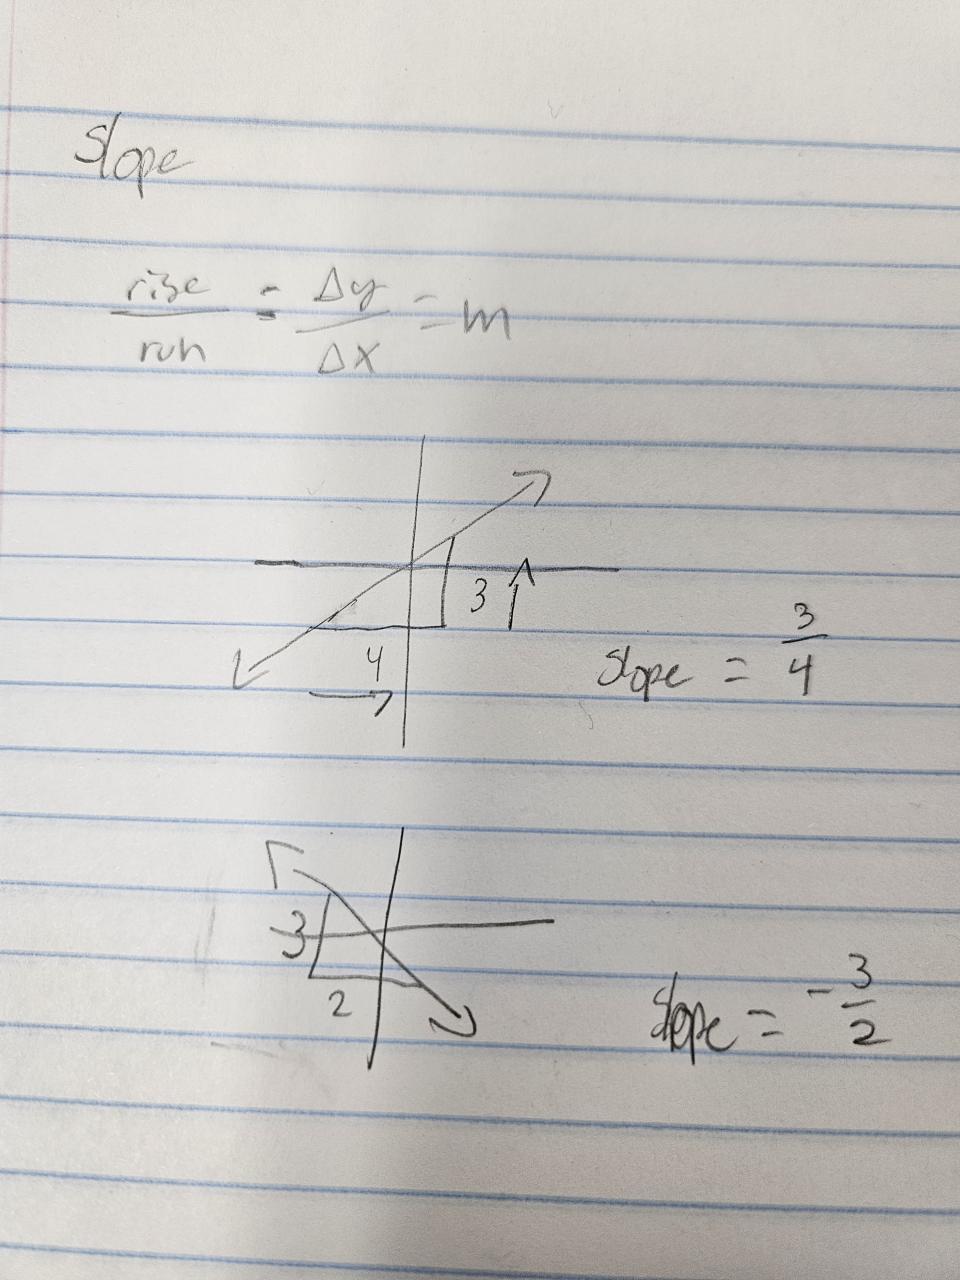 Slope
rise/run = Δy/Δx = m
3
4
slope = 3/4
3
2
slope = -3/2